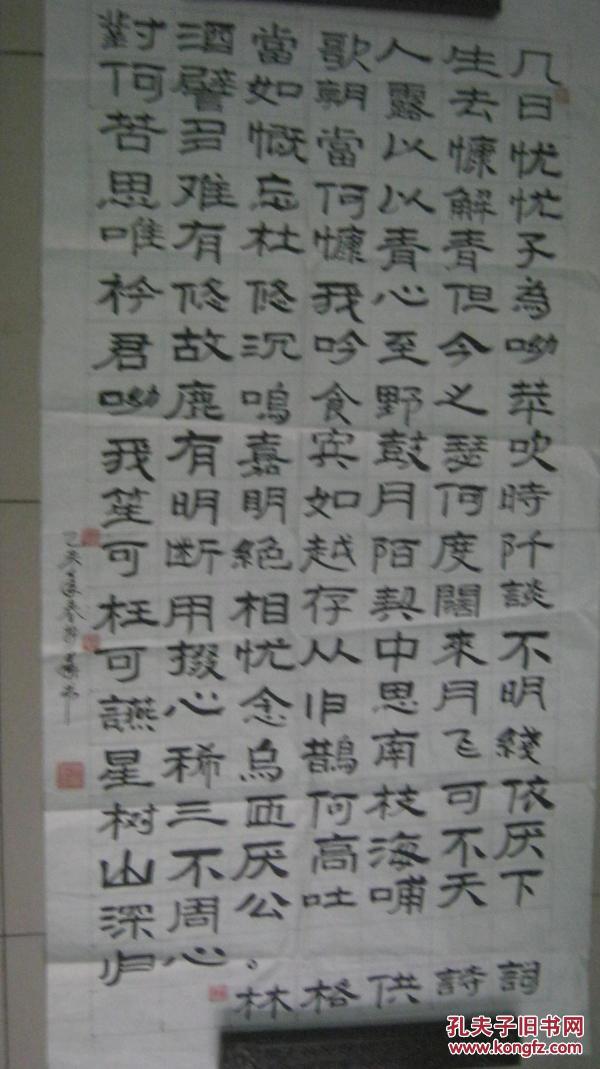 對酒當歌人生几
何譬如朝露去日
苦多慨當以慷忧
思难忘何以解忧
唯有杜慷青青子
衿修修我心但為
君故沉吟至今呦
呦鹿鳴食野之苹
我有嘉宾鼓瑟吹
笙明明如月何時
可断絕越陌度阡
枉用相存契闊談
可掇忧从中來不
讌心念旧思月明
星稀烏鵲南飞綫
树三匝何枝可依
山不厌高海不厌
深周公吐哺天下
归心。
林格供詩詞
孔夫子旧书网
www.kongfz.com